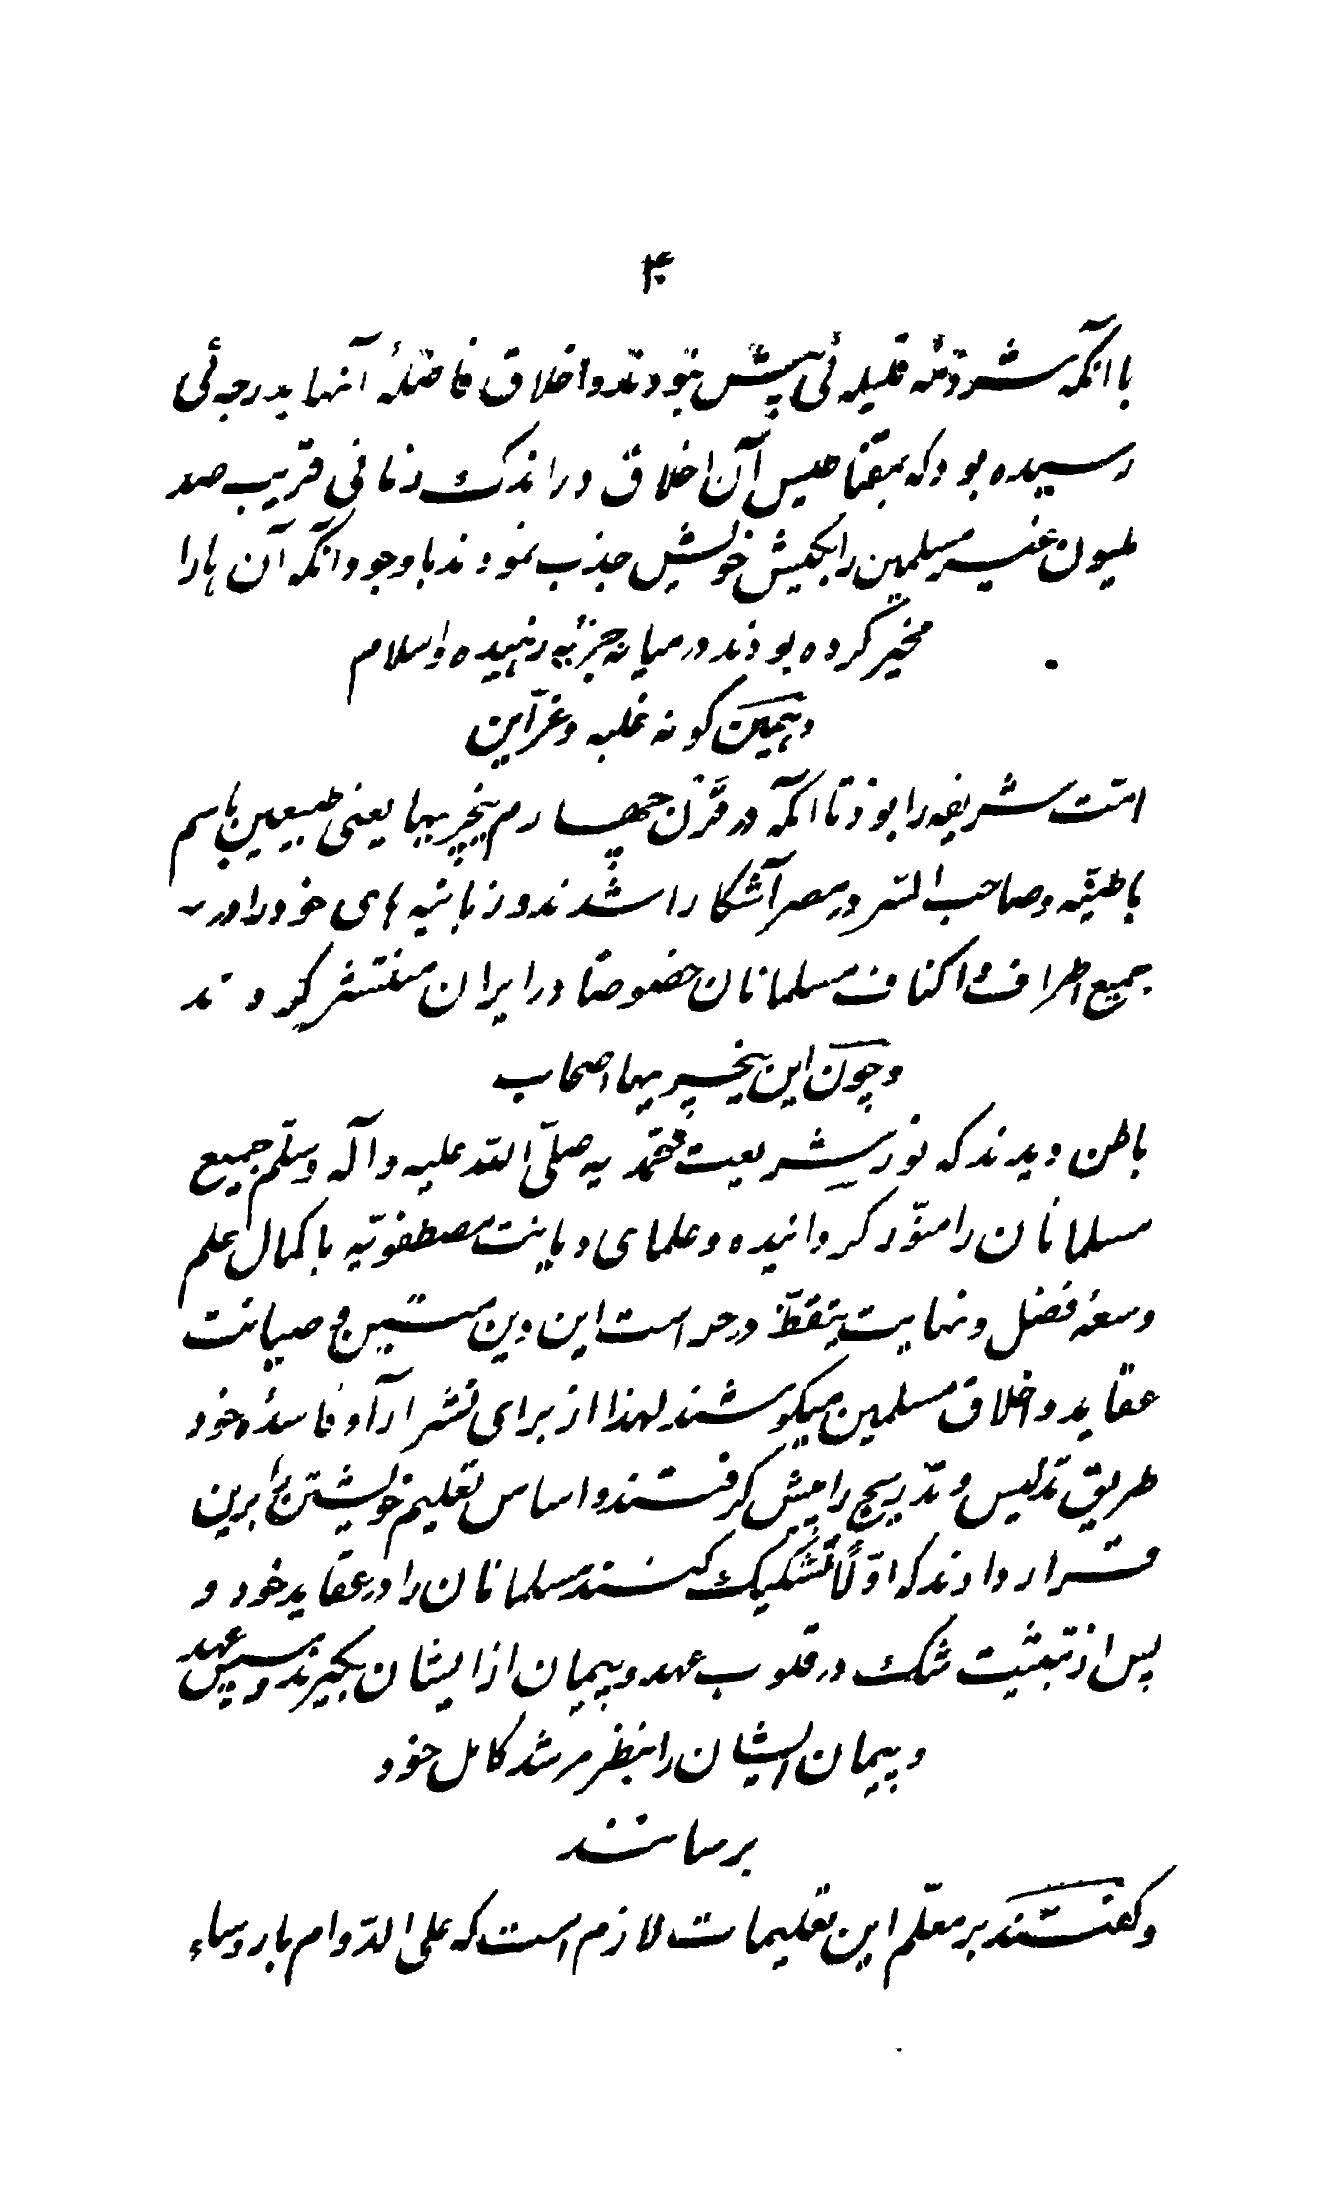 ۴۰
با آنکه شرذمهٔ قلیله‌ئی بیش نبودند و اخلاق فاضلهٔ آنها بدرجه‌ئی
رسیده بود که بمقناطیس آن اخلاق در اندک زمانی قریب صد
ملیون غیر مسلمین را بکیش خویش جذب نمودند با وجود آنکه آن ها را
مخیر کرده بودند در میانه جزیه زهیده و اسلام
و همین گونه غلبه و عز این
امت شریفه را بود تا آنکه در قرن چهارم نیچریها یعنی طبیعیین باسم
باطنیه و صاحب السر در مصر آشکارا شدند و زبانیه های خود را در
جمیع اطراف و اکناف مسلمانان خصوصا در ایران منتشر کردند
و چون این نیچریهاء اصحاب
باطن دیدند که نور شریعت محمدیه صلّی الله علیه و آله و سلّم جمیع
مسلمانان را منوّر گردانیده و علمای دیانت مصطفویّه با کمال علم
و سعهٔ فضل و نهایت تیقظ در حراست این دین متین و صیانت
عقاید و اخلاق مسلمین میکوشند لهذا از برای نشر آراء فاسدهٔ خود
طریق تدلیس و تدریج را پیش گرفتند و اساس تعلیم خویشتن را برین
قرار دادند که اوّلاً تشکیک کنند مسلمانان را در عقاید خود و
پس از تثبیت شک در قلوب عهد و پیمان از ایشان بگیرند و سپس عهد
و پیمان ایشان را بنظر مرشد کامل خود
برسانند
و گفتند بر معلّم این تعلیمات لازم است که علی الدّوام با روساء